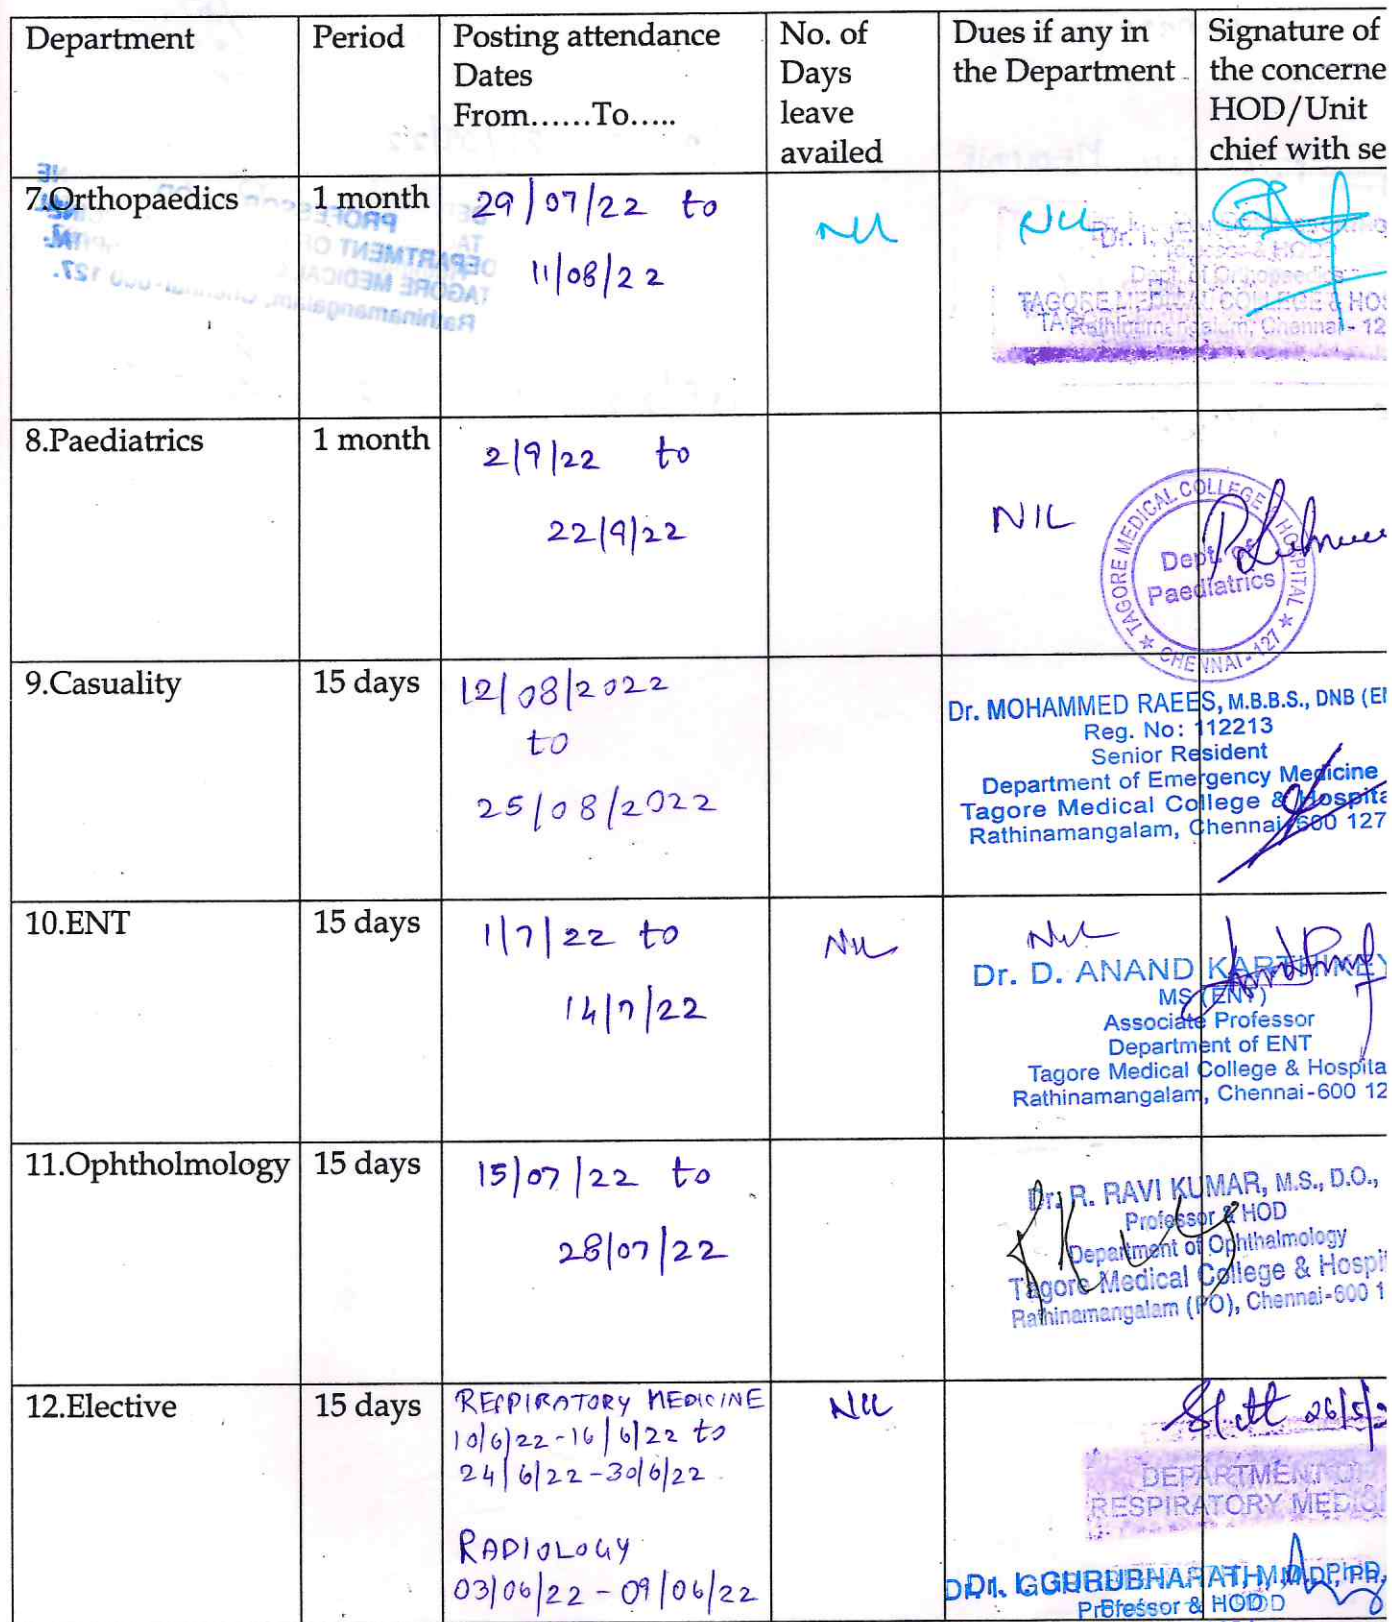 Department Period Posting attendance Dates From......To..... No. of Days leave availed Dues if any in the Department Signature of the concerne HOD/Unit chief with se
7.Orthopaedics 1 month 29/07/22 to 11/08/22 Nil Nil
Dept. of Orthopaedics
TAGORE MEDICAL COLLEGE & HOS
Rathinamangalam, Chennai - 12
PROFESSOR
DEPARTMENT OF
TAGORE MEDICAL
Rathinamangalam, Chennai-600 127.
8.Paediatrics 1 month 2/9/22 to 22/9/22 NIL
TAGORE MEDICAL COLLEGE HOSPITAL
Dept. of
Paediatrics
CHENNAI-127
9.Casuality 15 days 12/08/2022 to 25/08/2022
Dr. MOHAMMED RAEES, M.B.B.S., DNB (E
Reg. No: 112213
Senior Resident
Department of Emergency Medicine
Tagore Medical College & Hospita
Rathinamangalam, Chennai-600 127
10.ENT 15 days 1/7/22 to 14/7/22 Nil Nil
Dr. D. ANAND KARTHIKEY
MS (ENT)
Associate Professor
Department of ENT
Tagore Medical College & Hospita
Rathinamangalam, Chennai-600 12
11.Ophtholmology 15 days 15/07/22 to 28/07/22
Dr. R. RAVI KUMAR, M.S., D.O.,
Professor & HOD
Department of Ophthalmology
Tagore Medical College & Hospi
Rathinamangalam (PO), Chennai-600 1
12.Elective 15 days RESPIRATORY MEDICINE Nil
10/6/22-16/6/22 to
24/6/22-30/6/22
26/5/2
DEPARTMENT OF
RESPIRATORY MEDICI
RADIOLOGY
03/06/22 - 09/06/22
GURUBHARATH
Professor & HOD